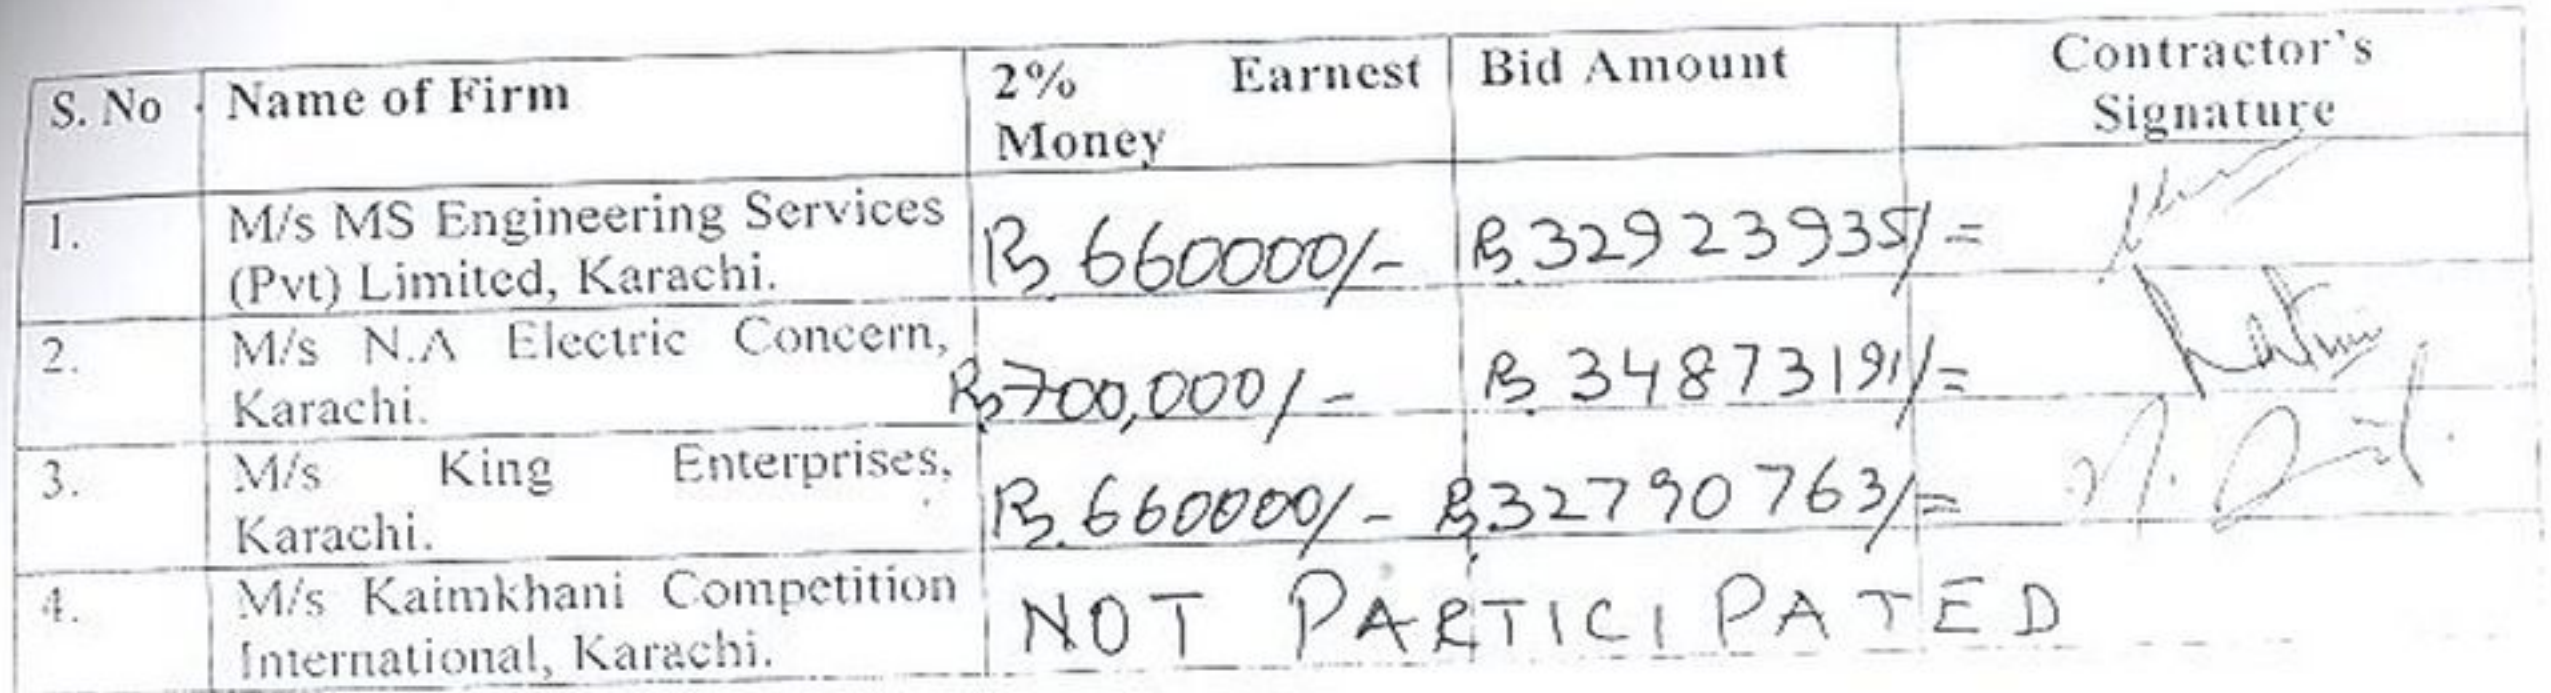 S. No Name of Firm 2% Earnest Money Bid Amount Contractor's Signature
1. M/s MS Engineering Services (Pvt) Limited, Karachi. Rs. 660000/- Rs. 32923935/=
2. M/s N.A Electric Concern, Karachi. Rs 700,000/- Rs. 34873191/=
3. M/s King Enterprises, Karachi. Rs. 660000/- Rs. 32790763/=
4. M/s Kaimkhani Competition International, Karachi. NOT PARTICIPATED